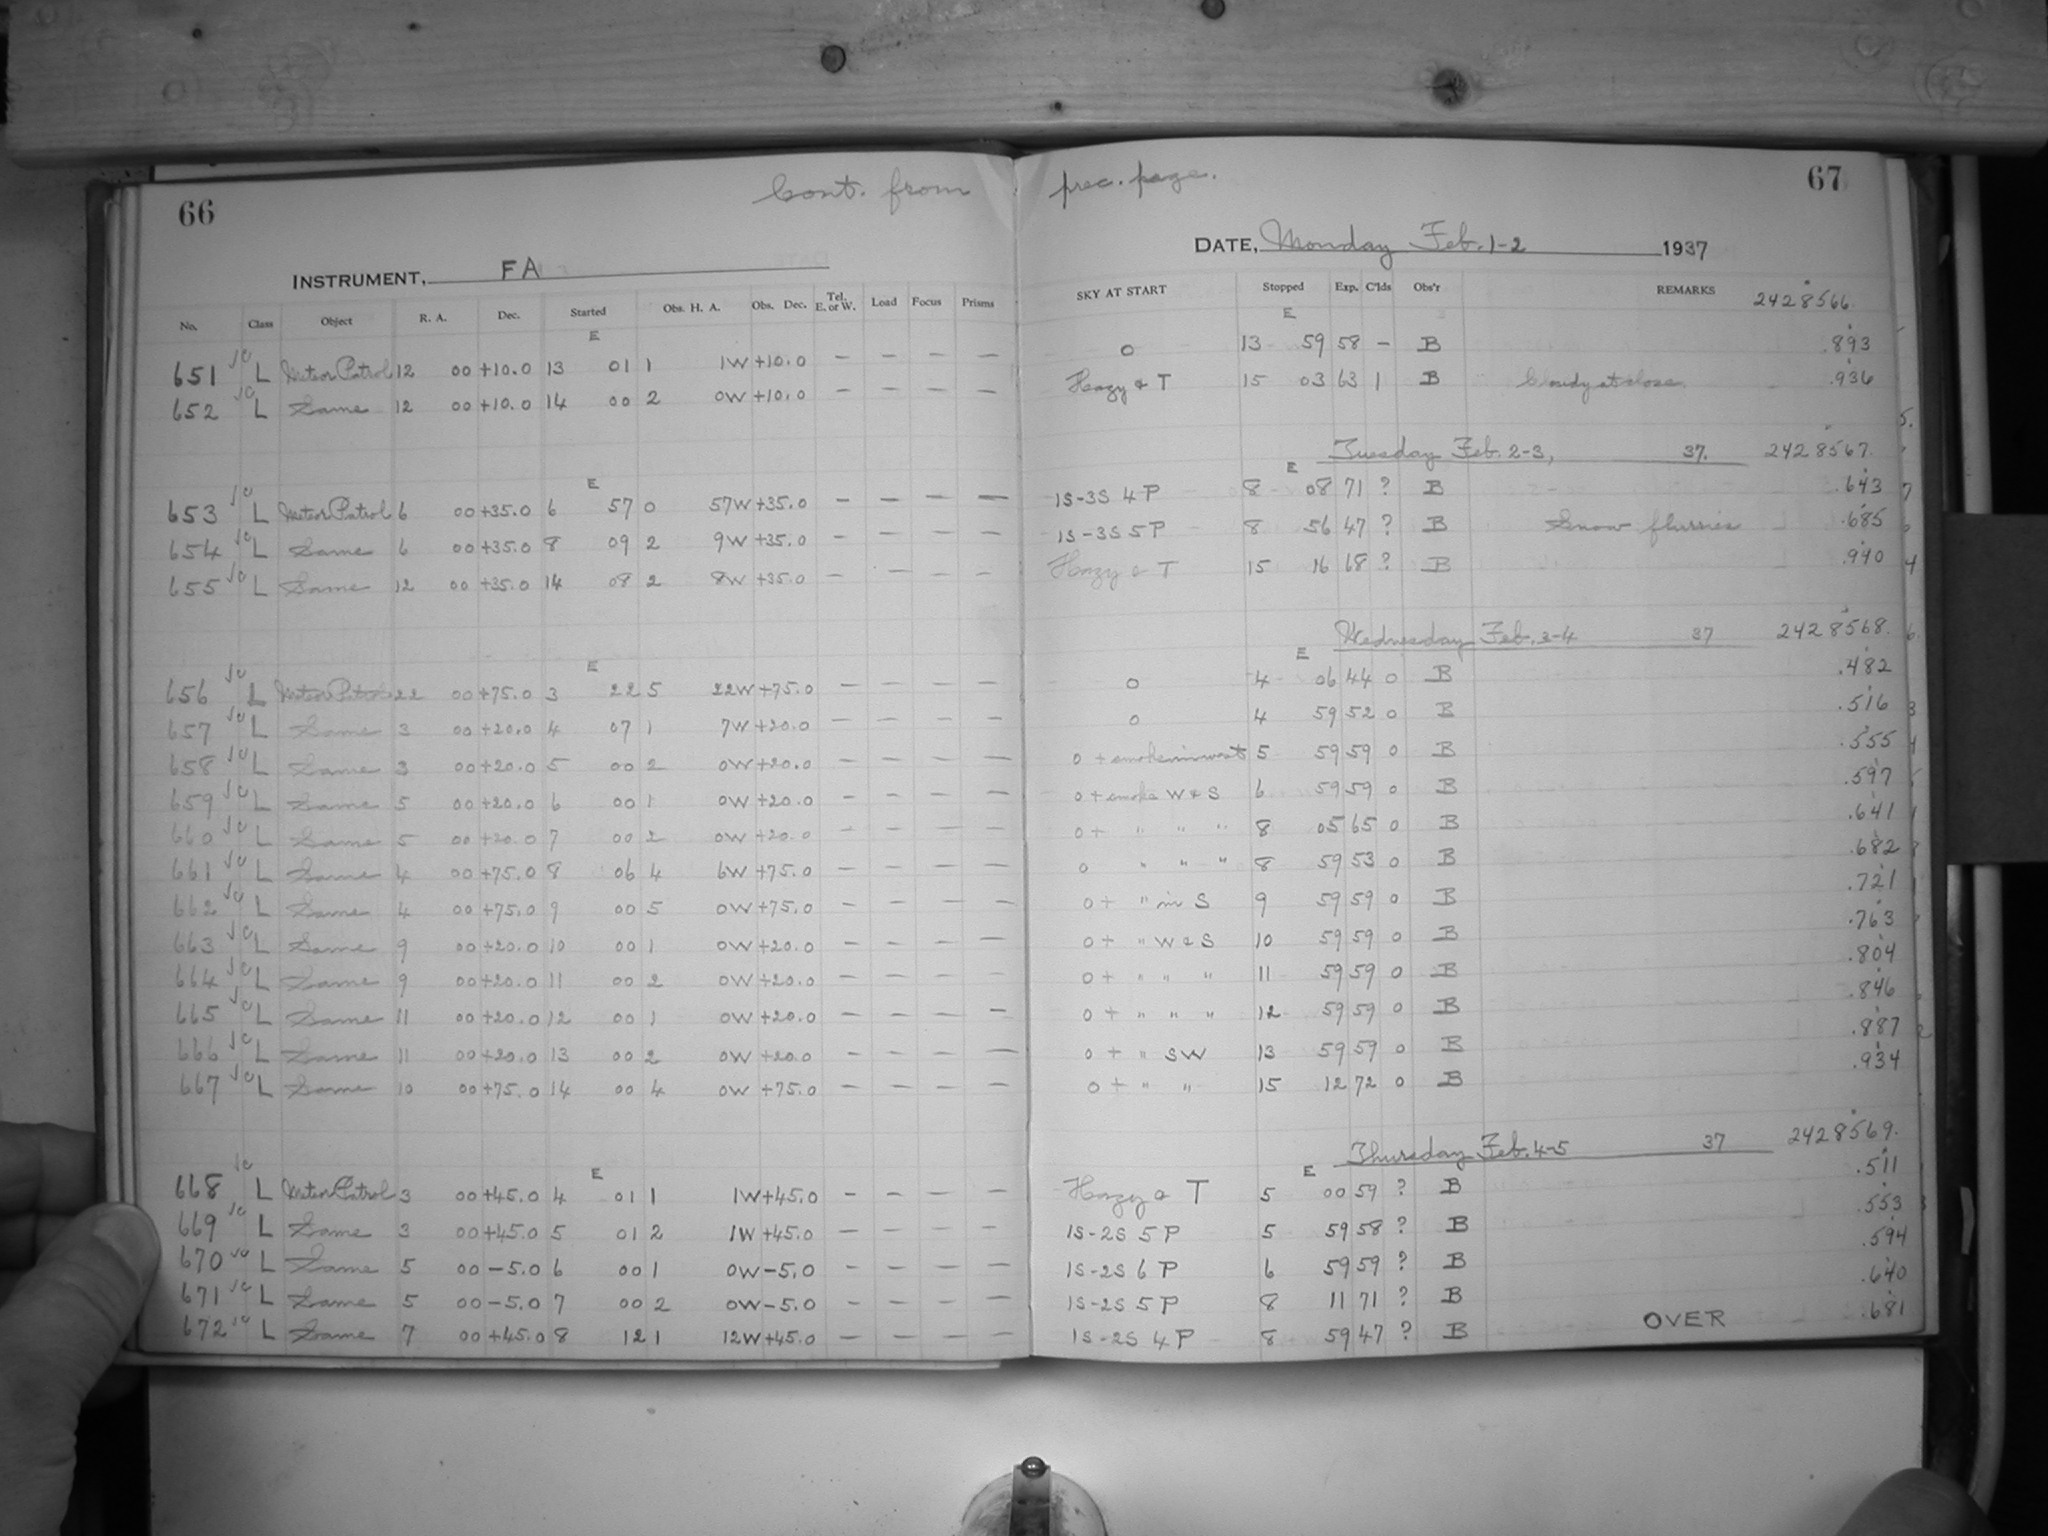 Cont. from prec. page.
66
67
INSTRUMENT, FA
DATE, Monday Feb. 1-2 1937
No. Class Object R. A. Dec. Started Obs. H. A. Obs. Dec. Tel. E. or W. Load Focus Prisms SKY AT START Stopped Exp. C'lds Obs'r REMARKS 2428566.
E E
651 L Meteor Patrol 12 00 +10.0 13 01 1 1W +10.0 — — — — 0 13 59 58 — B .893
652 L Same 12 00 +10.0 14 00 2 0W +10.0 — — — — Hazy & T 15 03 63 1 B Cloudy at close. .936
Tuesday Feb. 2-3, 37. 2428567.
E E
653 L Meteor Patrol 6 00 +35.0 6 57 0 57W +35.0 — — — — 1S-3S 4P 8 08 71 ? B .643
654 L Same 6 00 +35.0 8 09 2 9W +35.0 — — — — 1S-3S 5P 8 56 47 ? B Snow flurries .685
655 L Same 12 00 +35.0 14 08 2 8W +35.0 — — — — Hazy & T 15 16 68 ? B .940
Wednesday Feb. 3-4 37 2428568.
E E
656 L Meteor Patrol 22 00 +75.0 3 22 5 22W +75.0 — — — — 0 4 06 44 0 B .482
657 L Same 3 00 +20.0 4 07 1 7W +20.0 — — — — 0 4 59 52 0 B .516
658 L Same 3 00 +20.0 5 00 2 0W +20.0 — — — — 0 + smoke in west 5 59 59 0 B .555
659 L Same 5 00 +20.0 6 00 1 0W +20.0 — — — — 0 + smoke W & S 6 59 59 0 B .597
660 L Same 5 00 +20.0 7 00 2 0W +20.0 — — — — 0 + " " " 8 05 65 0 B .641
661 L Same 4 00 +75.0 8 06 4 6W +75.0 — — — — 0 " " " 8 59 53 0 B .682
662 L Same 4 00 +75.0 9 00 5 0W +75.0 — — — — 0 + " in S 9 59 59 0 B .721
663 L Same 9 00 +20.0 10 00 1 0W +20.0 — — — — 0 + " W & S 10 59 59 0 B .763
664 L Same 9 00 +20.0 11 00 2 0W +20.0 — — — — 0 + " " " 11 59 59 0 B .804
665 L Same 11 00 +20.0 12 00 1 0W +20.0 — — — — 0 + " " " 12 59 59 0 B .846
666 L Same 11 00 +20.0 13 00 2 0W +20.0 — — — — 0 + " SW 13 59 59 0 B .887
667 L Same 10 00 +75.0 14 00 4 0W +75.0 — — — — 0 + " " 15 12 72 0 B .934
Thursday Feb. 4-5 37 2428569.
E E
668 L Meteor Patrol 3 00 +45.0 4 01 1 1W +45.0 — — — — Hazy & T 5 00 59 ? B .511
669 L Same 3 00 +45.0 5 01 2 1W +45.0 — — — — 1S-2S 5P 5 59 58 ? B .553
670 L Same 5 00 -5.0 6 00 1 0W -5.0 — — — — 1S-2S 6P 6 59 59 ? B .594
671 L Same 5 00 -5.0 7 00 2 0W -5.0 — — — — 1S-2S 5P 8 11 71 ? B .640
672 L Same 7 00 +45.0 8 12 1 12W +45.0 — — — — 1S-2S 4P 8 59 47 ? B .681
OVER